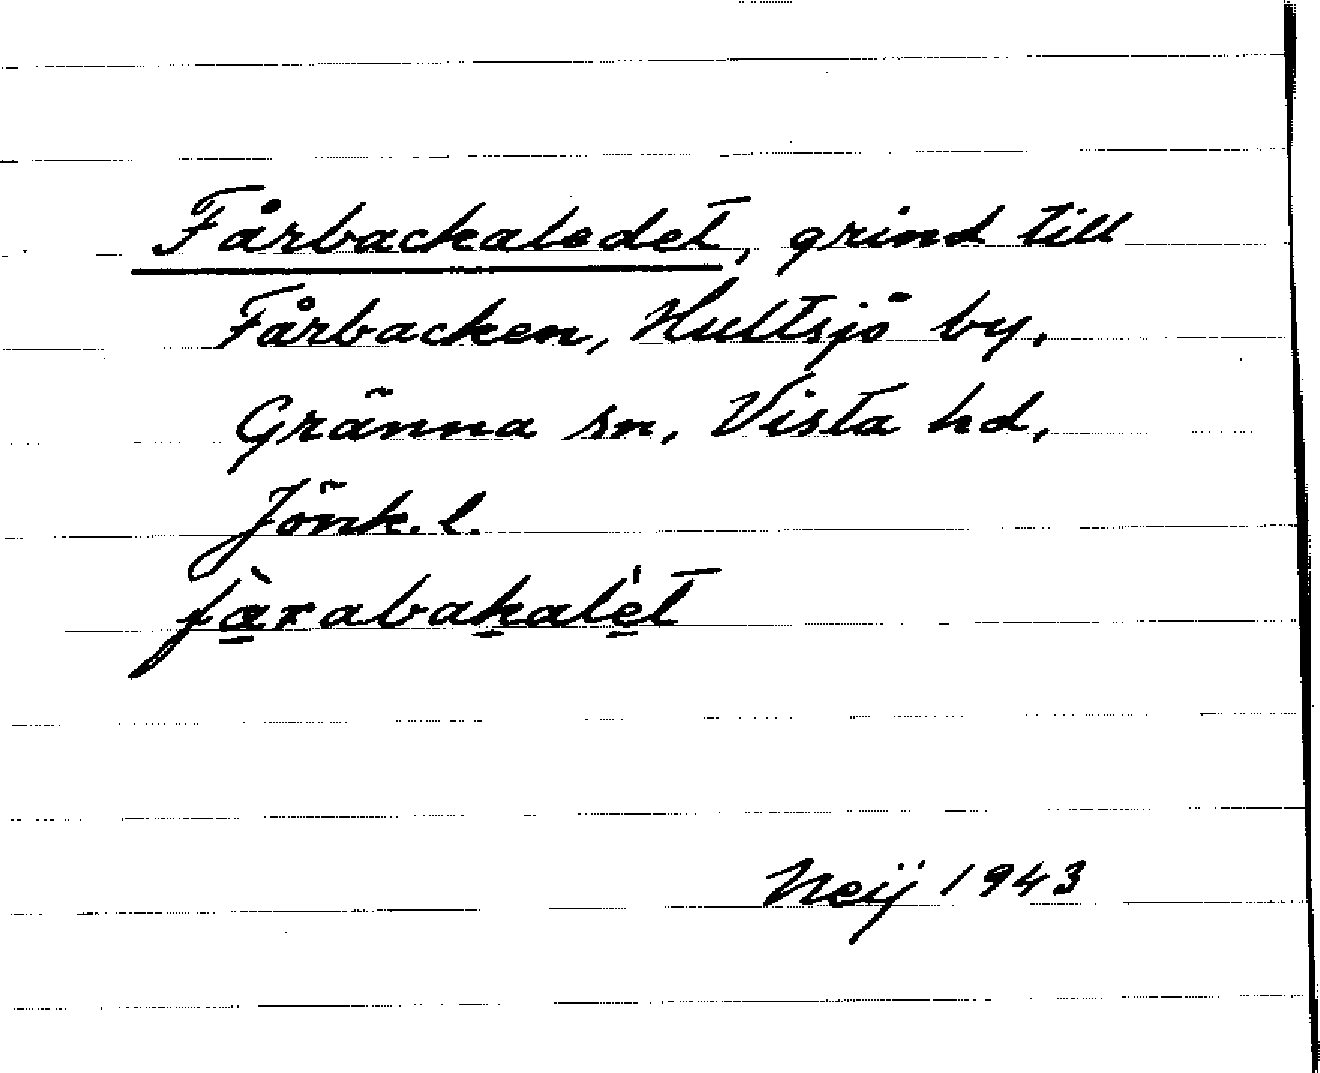 Fårbackaledet, grind till
Fårbacken, Hultsjö by,
Gränna sn, Vista hd,
Jönk. l.
fàrabakalét
Neij 1943